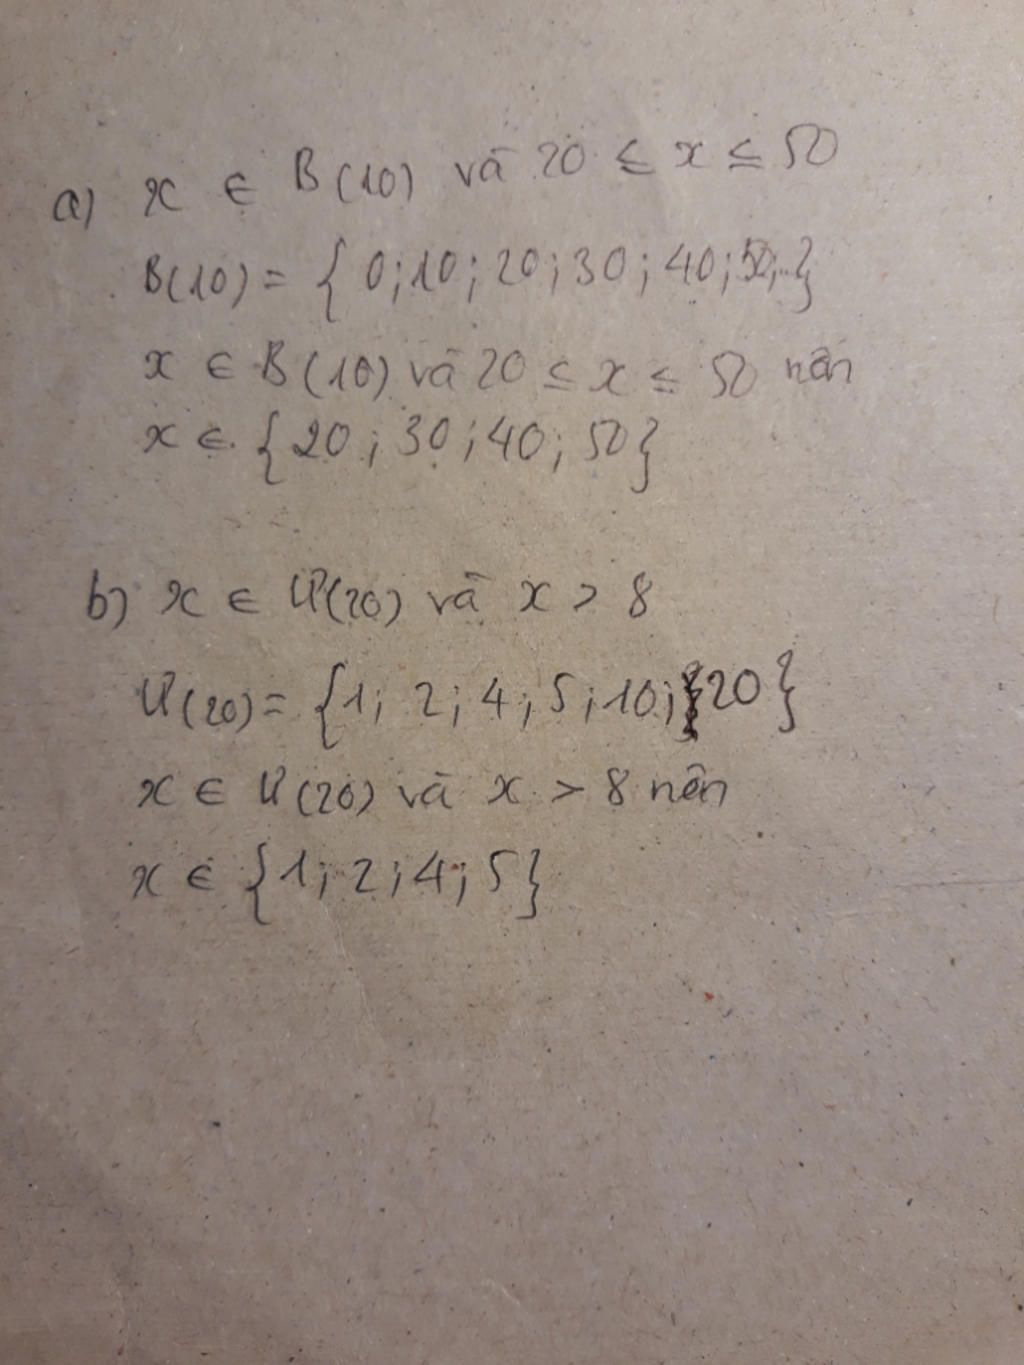 a) x ∈ B(10) và 20 ≤ x ≤ 50
B(10) = { 0; 10; 20; 30; 40; 50;..}
x ∈ B(10) và 20 ≤ x ≤ 50 nên
x ∈ {20; 30; 40; 50}
b) x ∈ Ư(20) và x > 8
Ư(20) = {1; 2; 4; 5; 10; 20}
x ∈ Ư(20) và x > 8 nên
x ∈ {1; 2; 4; 5}